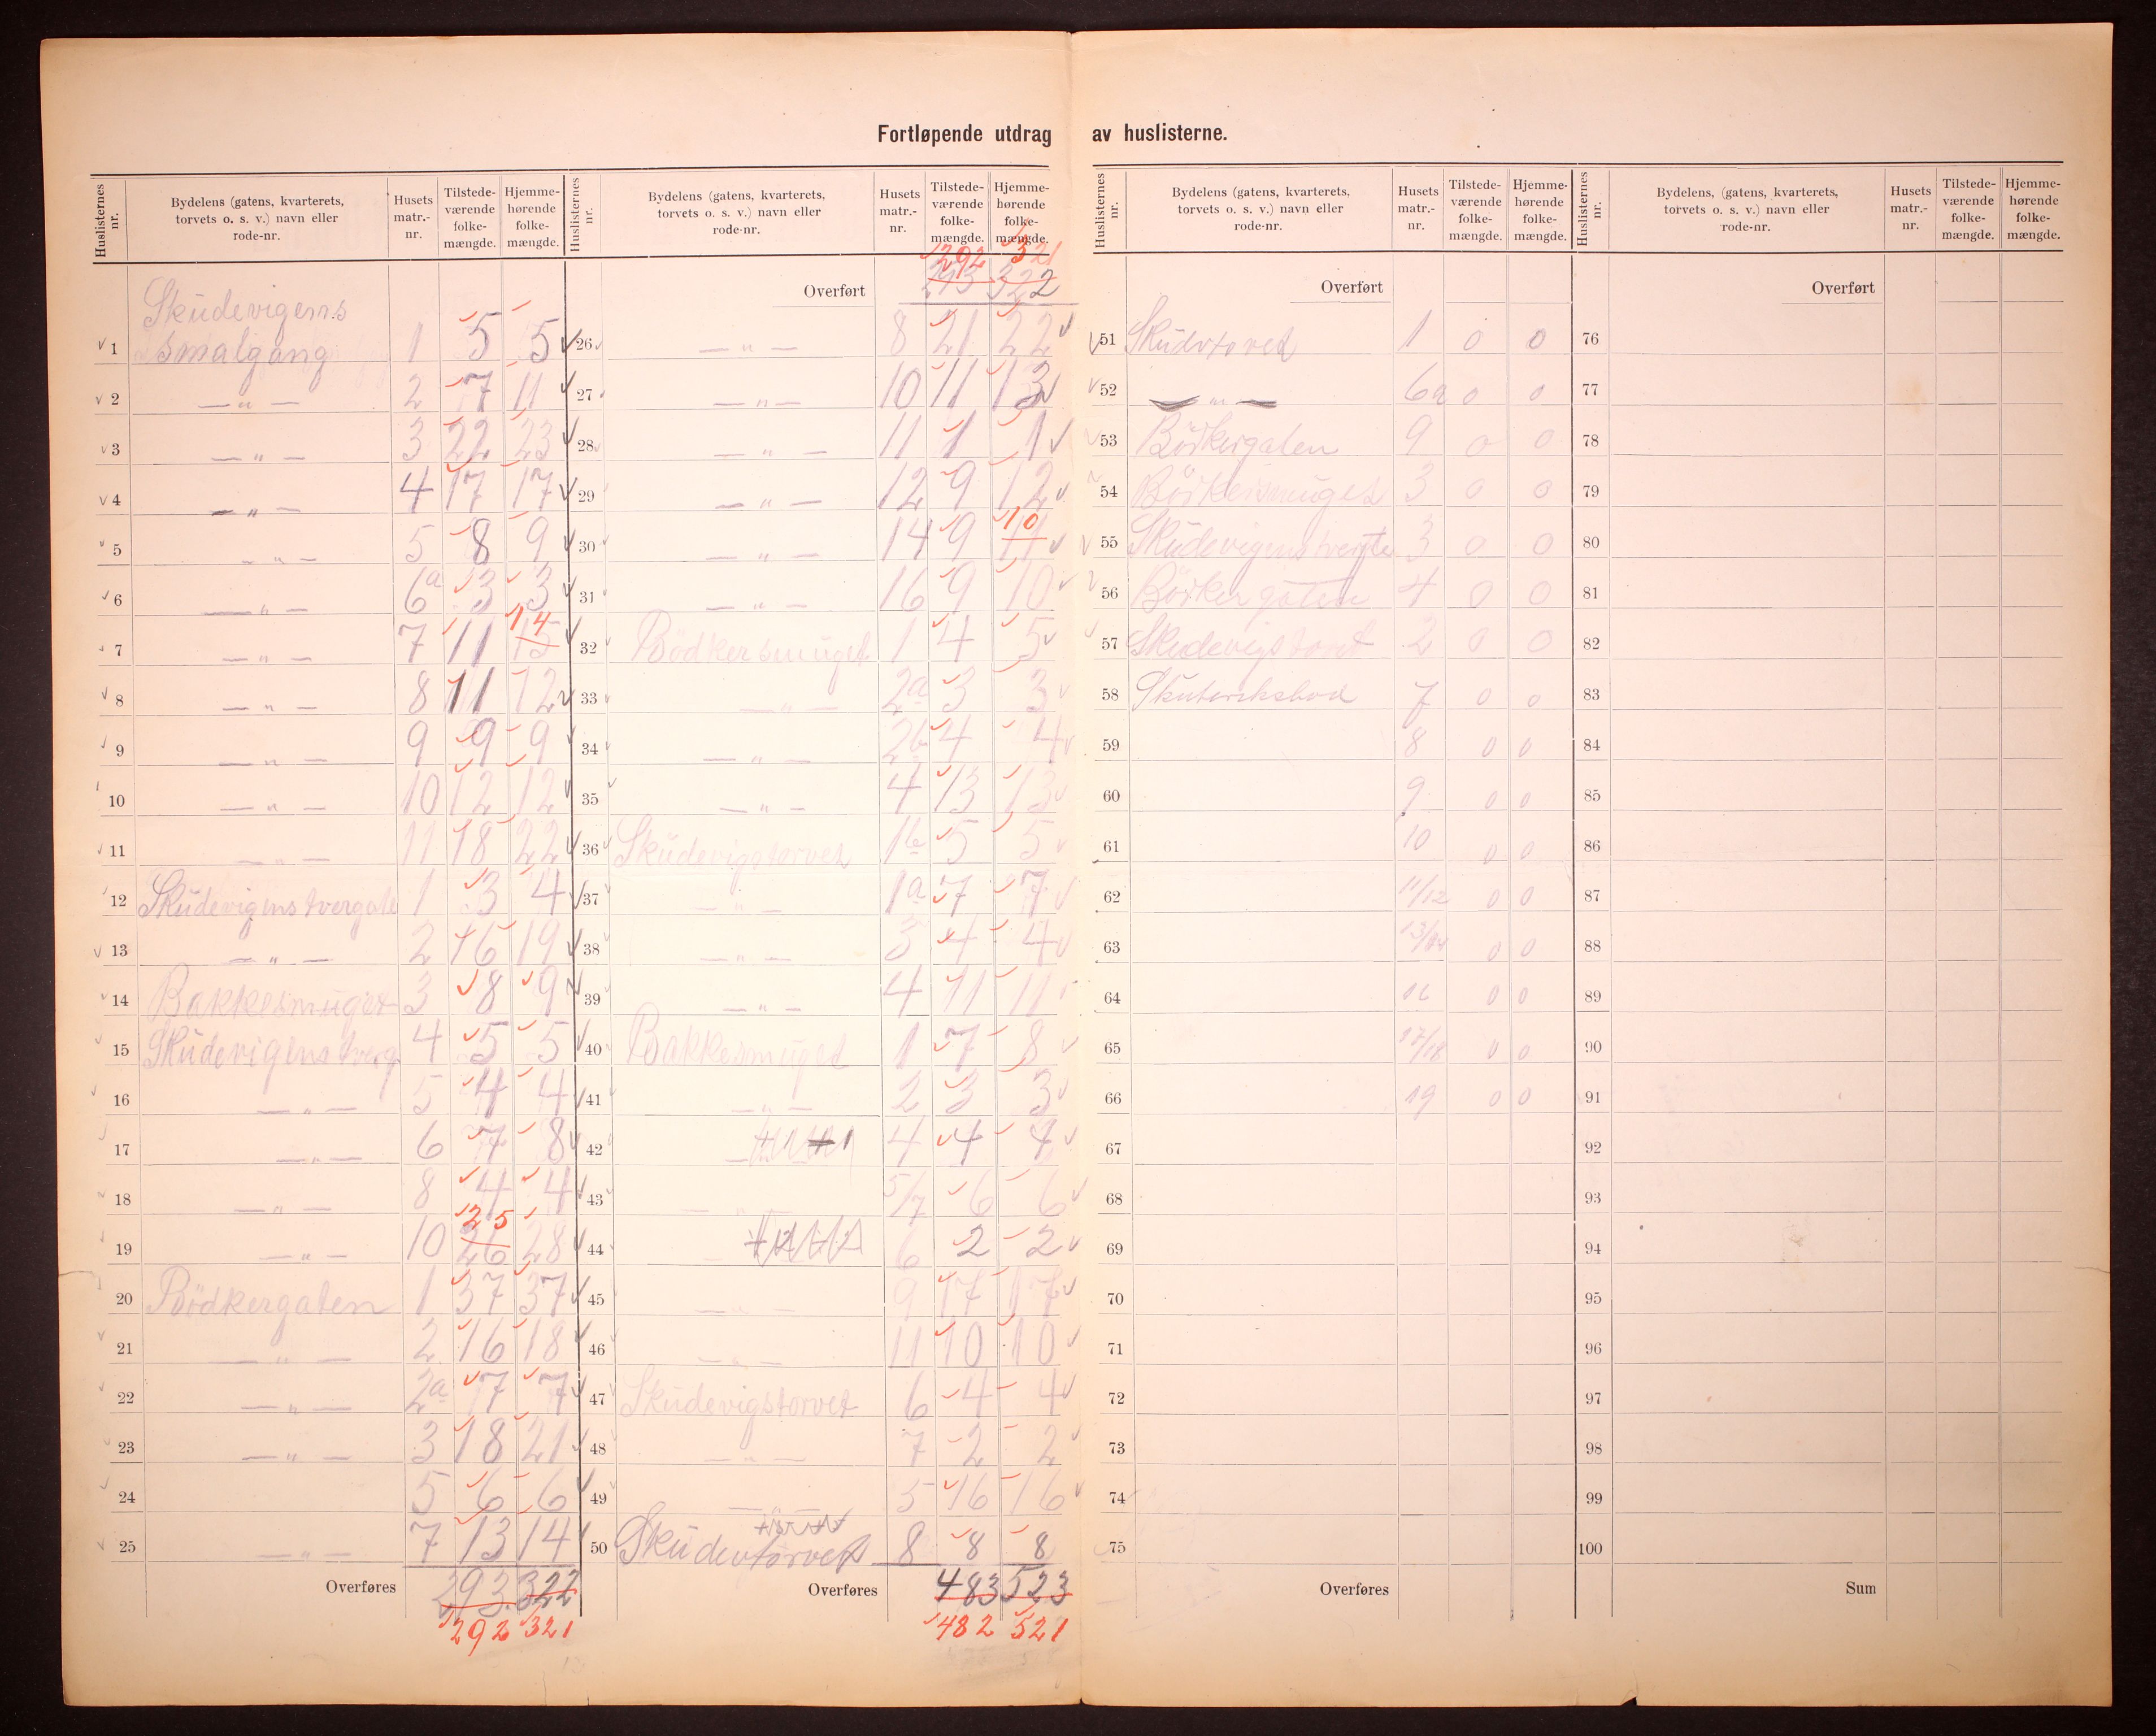 Fortløpende utdrag av huslisterne.
Huslisternes nr. Bydelens (gatens, kvarterets, torvets o. s. v.) navn eller rode-nr. Husets matr.-nr. Tilstedeværende folkemængde. Hjemmehørende folkemængde.
Skudevigens
1 Smalgang 1 5 5
2 —„— 2 7 11
3 —„— 3 22 23
4 —„— 4 17 17
5 —„— 5 8 9
6 —„— 6a 3 3
7 —„— 7 11 15 14
8 —„— 8 11 12
9 —„— 9 9 9
10 —„— 10 12 12
11 —„— 11 18 22
12 Skudevigens tvergate 1 3 4
13 —„— 2 16 19
14 Bakkesmuget 3 8 9
15 Skudevigens tverg 4 5 5
16 —„— 5 4 4
17 —„— 6 7 8
18 —„— 8 4 4
19 —„— 10 26 25 28
20 Bödkergaten 1 37 37
21 —„— 2 16 18
22 —„— 2a 7 7
23 —„— 3 18 21
24 5 6 6
25 —„— 7 13 14
Overføres 293 322
292 321
Huslisternes nr. Bydelens (gatens, kvarterets, torvets o. s. v.) navn eller rode-nr. Husets matr.-nr. Tilstedeværende folkemængde. Hjemmehørende folkemængde.
292 321
Overført 293 322
26 —„— 8 21 22
27 —„— 10 11 13
28 —„— 11 1 1
29 —„— 12 9 12
30 —„— 14 9 11 10
31 —„— 16 9 10
32 Bödkersmuget 1 4 5
33 —„— 2a 3 3
34 —„— 2b 4 4
35 —„— 4 13 13
36 Skudevigstorvet 1b 5 5
37 —„— 1a 7 7
38 —„— 3 4 4
39 —„— 4 11 11
40 Bakkesmuget 1 7 8
41 —„— 2 3 3
42 4 4 4
43 —„— 5/7 6 6
44 6 2 2
45 —„— 9 17 17
46 —„— 11 10 10
47 Skudevigstorvet 6 4 4
48 —„— 7 2 2
49 —„— 5 16 16
50 Skudevtorvet 8 8 8
Overføres 483 523
482 521
Huslisternes nr. Bydelens (gatens, kvarterets, torvets o. s. v.) navn eller rode-nr. Husets matr.-nr. Tilstedeværende folkemængde. Hjemmehørende folkemængde.
Overført
51 Skudvtoved 1 0 0
52 —„— 6a 0 0
53 Bödkergaten 9 0 0
54 Bödkersmuget 3 0 0
55 Skudevigens 3 0 0
56 Bödkergaten 4 0 0
57 Skudevigstoret 2 0 0
58 7 0 0
59 8 0 0
60 9 0 0
61 10 0 0
62 11/12 0 0
63 13/14 0 0
64 16 0 0
65 17/18 0 0
66 19 0 0
67
68
69
70
71
72
73
74
75
Overføres
Huslisternes nr. Bydelens, (gatens, kvarterets, torvets o. s. v.) navn eller rode-nr. Husets matr.-nr. Tilstedeværende folkemængde. Hjemmehørende folkemængde.
Overført
76
77
78
79
80
81
82
83
84
85
86
87
88
89
90
91
92
93
94
95
96
97
98
99
100
Sum